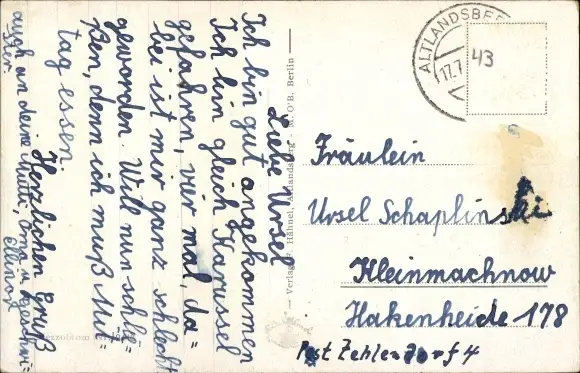 Liebe Ursel
Ich bin gut angekommen
Ich bin gleich Karussel
gefahren, vier mal, da=
bei ist mir ganz schlecht
geworden. Will nun schlie=
ßen, denn ich muß Mit=
tag essen.
Herzlichen Gruß
auch an deine Mutti, Oma u. Geschwi=
ster.
ALTLANDSBE
17.7
43
Fräulein
Ursel Schaplinski
Kleinmachnow
Hakenheide 178
Post Zehlendorf 4
Verlag F. Hähnel, Altlandsberg
O'B. Berlin